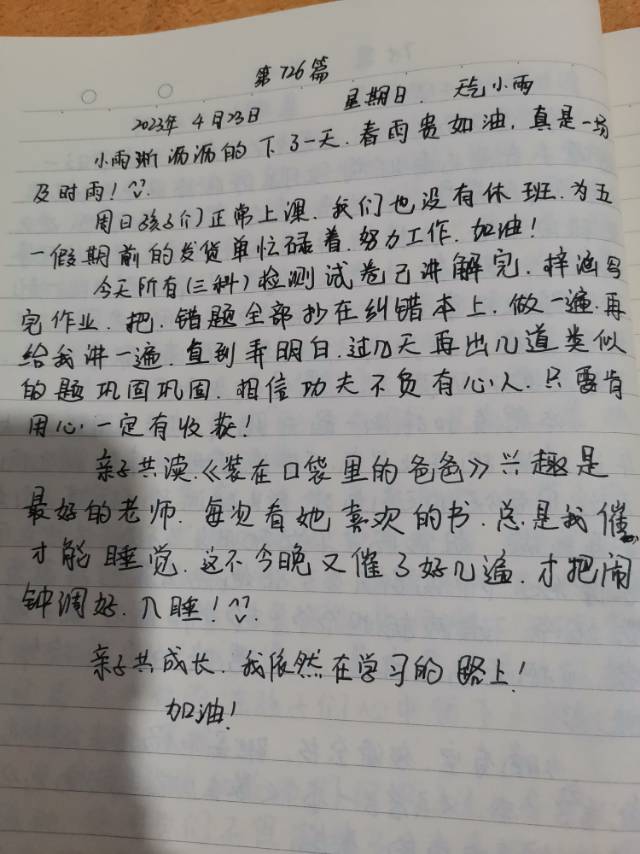 第726篇
2023年4月23日 星期日. 天气小雨
小雨淅沥沥的下了一天. 春雨贵如油, 真是一场
及时雨! ^^.
周日孩子们正常上课. 我们也没有休班. 为五
一假期前的发货单忙碌着. 努力工作. 加油!
今天所有(三科)检测试卷已讲解完. 梓涵写
完作业. 把. 错题全部抄在纠错本上. 做一遍. 再
给我讲一遍. 直到弄明白. 过几天再出几道类似
的题巩固巩固. 相信功夫不负有心人. 只要肯
用心. 一定有收获!
亲子共读.《装在口袋里的爸爸》兴趣是
最好的老师. 每次看她喜欢的书. 总是我催
才能睡觉. 这不今晚又催了好几遍. 才把闹
钟调好. 入睡! ^^.
亲子共成长. 我依然在学习的路上!
加油!